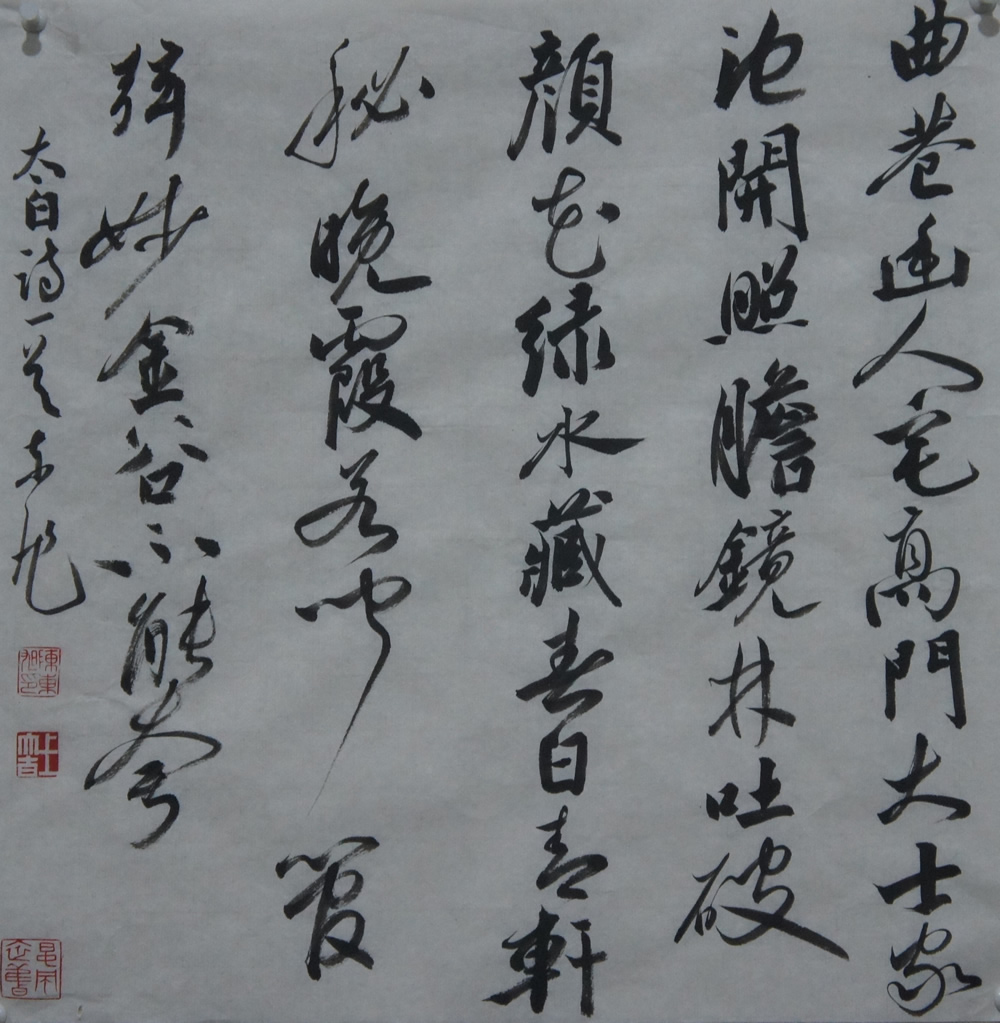 曲巷幽人宅高門大士家
池開照膽鏡林吐破
顏花綠水藏春日青軒
秘晚霞若聞管
弦妙金谷不能夸
太白詩一首东旭